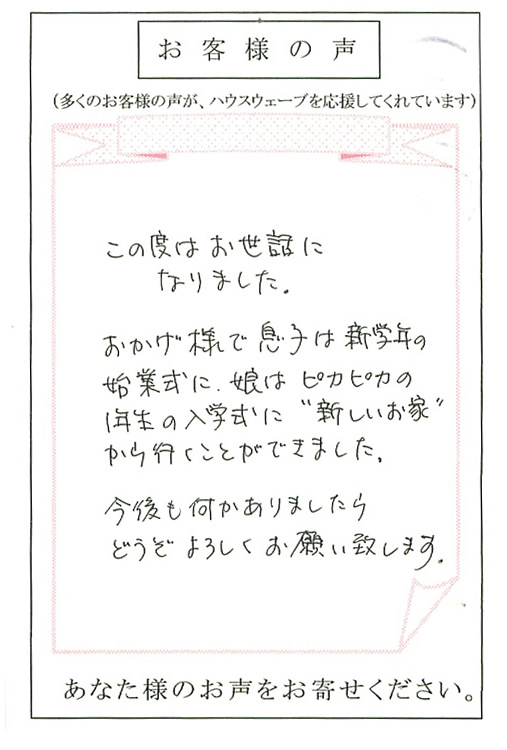 お客様の声
(多くのお客様の声が、ハウスウェーブを応援してくれています)
この度はお世話に
なりました。
おかげ様で息子は新学年の
始業式に、娘はピカピカの
1年生の入学式に〝新しいお家〟
から行くことができました。
今後も何かありましたら
どうぞよろしくお願い致します。
あなた様のお声をお寄せください。